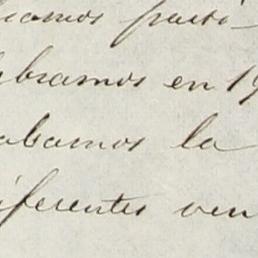 iamos parti-
lebramos en 19
abamos la
iferentes ven